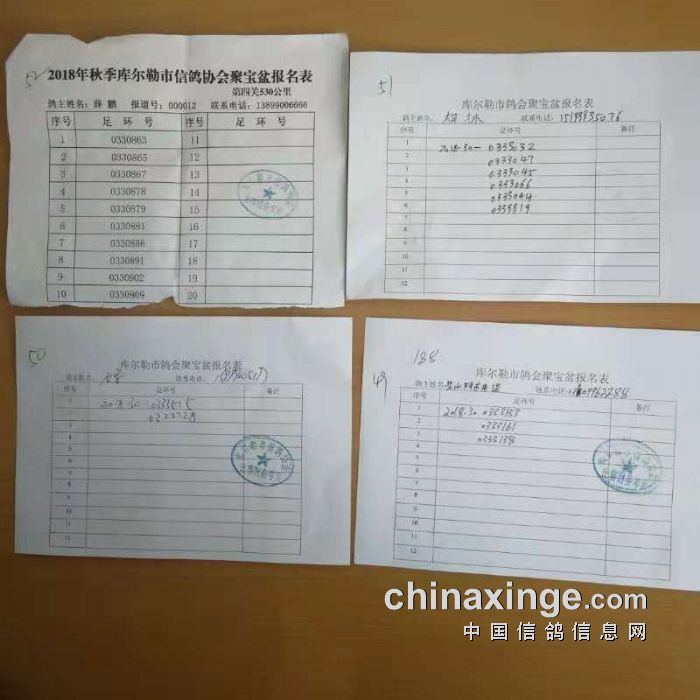 52
2018年秋季库尔勒市信鸽协会聚宝盆报名表
第四关530公里
鸽主姓名：薛 鹏 报道号：000012 联系电话：13899006666
序号 足 环 号 序号 足 环 号
1 0330863 11
2 0330865 12
3 0330867 13
4 0330878 14
5 0330879 15
6 0330881 16
7 0330886 17
8 0330891 18
9 0330902 19
10 0330909 20
51
库尔勒市鸽会聚宝盆报名表
鸽主姓名： 联系电话：
序号 足环号 备注
1 2018-30-0333032
2 0333047
3 0333045
4 0333066
5 0333044
6
7
8
9
10
11
12
50
库尔勒市鸽会聚宝盆报名表
鸽主姓名： 联系电话：
序号 足环号 备注
2018-30
49
188
库尔勒市鸽会聚宝盆报名表
鸽主姓名： 联系电话：
序号 足环号 备注
1 2018-30 0333153
2 0333161
3 0333138
4
5
6
7
8
9
10
11
12
chinaxinge.com
中国信鸽信息网